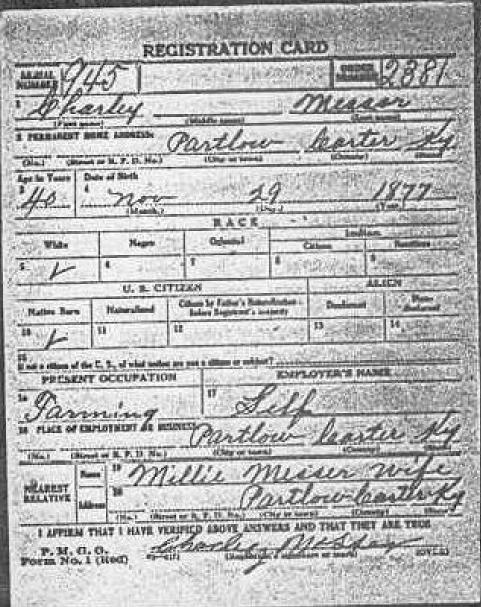 REGISTRATION CARD
SERIAL NUMBER 945 ORDER NUMBER 2381
1 Charley Messer
(First name) (Middle name) (Last name)
2 PERMANENT HOME ADDRESS: Partlow Carter Ky
(No.) (Street or R. F. D. No.) (City or town) (County) (State)
Age in Years Date of Birth
3 40 4 Nov 29 1877
(Month) (Day) (Year)
RACE
White Negro Oriental Indian
Citizen Noncitizen
5 ✓ 6 7 8 9
U. S. CITIZEN ALIEN
Native Born Naturalized Citizen by Father's Naturalization Before Registrant's Majority Declarant Non-declarant
10 ✓ 11 12 13 14
15
If not a citizen of the U. S., of what nation are you a citizen or subject?
PRESENT OCCUPATION EMPLOYER'S NAME
16 Farming 17 Self
18 PLACE OF EMPLOYMENT OR BUSINESS: Partlow Carter Ky
(No.) (Street or R. F. D. No.) (City or town) (County) (State)
NEAREST RELATIVE Name 19 Millie Messer Wife
Address 20 Partlow Carter Ky
(No.) (Street or R. F. D. No.) (City or town) (County) (State)
I AFFIRM THAT I HAVE VERIFIED ABOVE ANSWERS AND THAT THEY ARE TRUE
P. M. G. O.
Form No. 1 (Red) Charley Messer
(Registrant's signature or mark) (OVER)